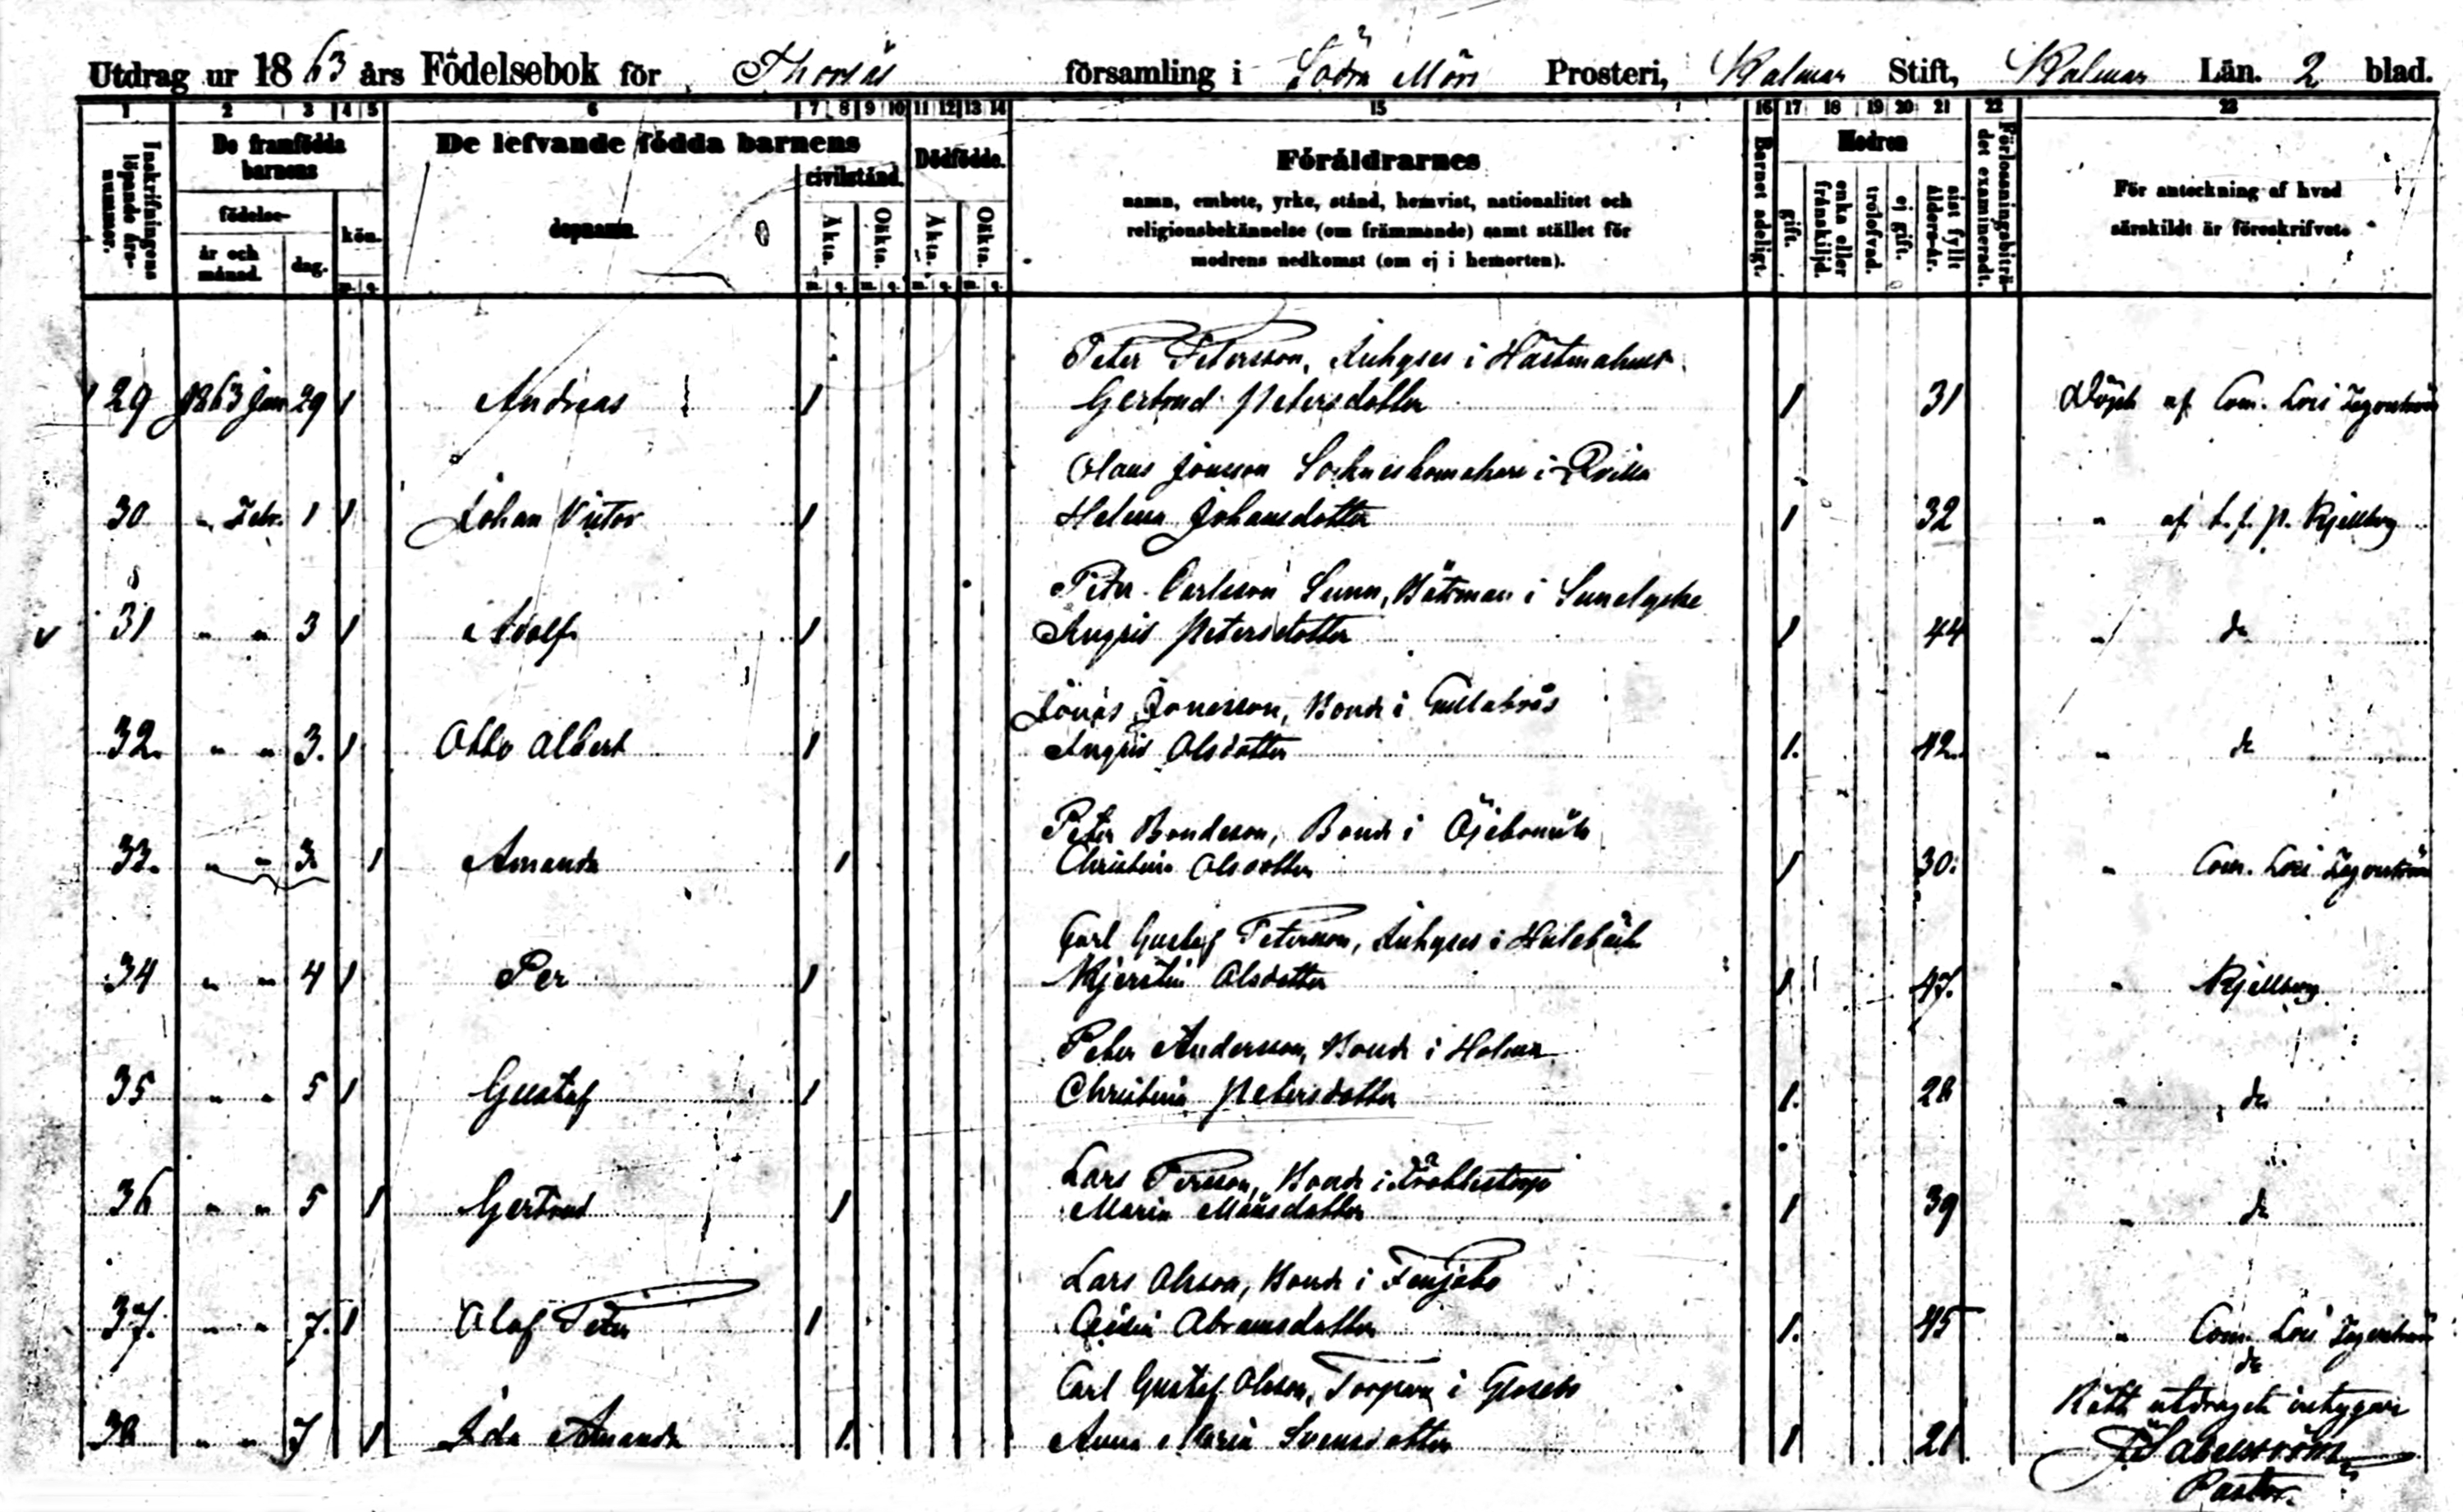 Utdrag ur 1863 års Födelsebok för Thorsås församling i Södra Möre Prosteri, Kalmar Stift, Kalmar Län. 2 blad.
1 2 3 4 5 6 7 8 9 10 11 12 13 14 15 16 17 18 19 20 21 22 23
Inskrifningens löpande årsnummer.
De framfödda barnens
födelse-
år och månad.
dag.
kön.
m. q.
De lefvande födda barnens
dopnamn.
civilstånd.
Äkta.
Oäkta.
m. q. m. q.
Dödfödde.
Äkta.
Oäkta.
m. q. m. q.
Föräldrarnes
namn, embete, yrke, stånd, hemvist, nationalitet och
religionsbekännelse (om främmande) samt stället för
modrens nedkomst (om ej i hemorten).
Barnet adeligt.
Modren
gift.
enka eller frånskiljd.
trolofvad.
ej gift.
sist fyllt ålders-år.
Förlossningsbiträdet examineradt.
För anteckning af hvad
särskildt är föreskrifvet.
Peter Petersson, Inhyses i
29 1863 Jan 29 1 Andreas 1 Gertrud Petersdotter 1 31 Döpt af Com.
Olaus Jonsson Sockneskomakare i
30 " Febr. 1 1 Johan Victor 1 Helena Johansdotter 1 32 " af Kjellberg
Peter Carlsson Sunn, Båtsman i
31 " " 3 1 Adolf 1 Ingrid Petersdotter 1 44 " do
Jonas Jonasson, Bonde i Gullabo
32. " " 3. 1 Otto Albert 1 Ingrid Olsdotter 1. 42. " do
Peter Bondeson, Bonde i
33. " " 3. 1 Amanda 1 Christina Olsdotter 1 30. " Com.
Carl Gustaf Petersson, Inhyses i
34 " " 4 1 Per 1 Kjerstin Olsdotter 1 47. " Kjellberg
Peter Andersson, Bonde i
35 " " 5 1 Gustaf 1 Christina Petersdotter 1. 28 " do
Lars Persson, Bonde i
36 " " 5 1 Gertrud 1 Maria Månsdotter 1 39 " do
Lars Olsson, Bonde i
37. " " 7. 1 Olaf Peter 1 Abramsdotter 1. 45 " Com.
do
Carl Gustaf Olsson, Torpare i
Rätt utdraget intygar
38 " " 7 1 Ida Amanda 1. Anna Maria Svensdotter 1 21
Pastor.